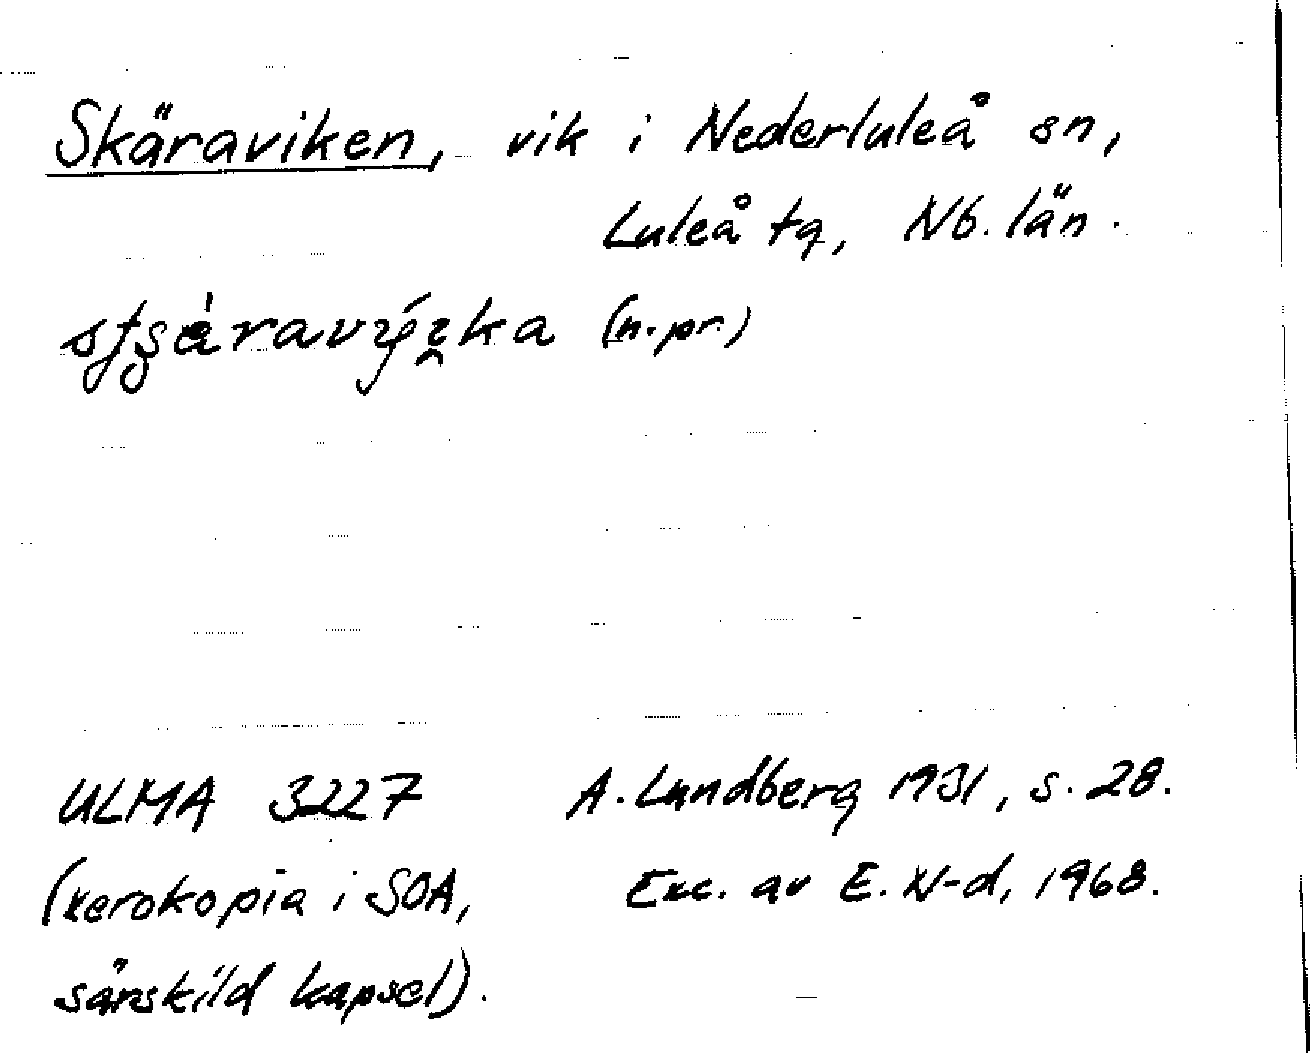 Skäraviken, vik i Nederluleå sn,
Luleå tg, Nb. län.
(n.pr.)
ULMA 3227 A. Lundberg 1931, s. 28.
(xerokopia i SOA, Exc. av E. N-d, 1968.
särskild kapsel).